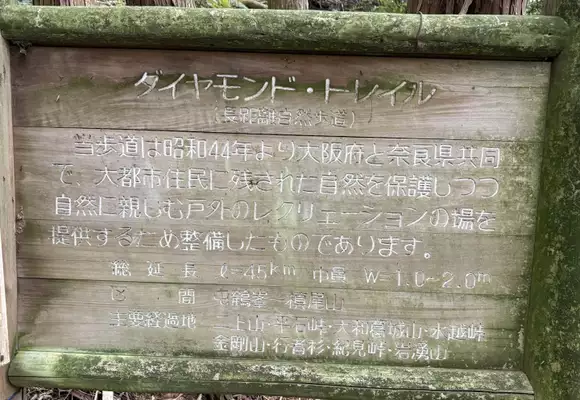 ダイヤモンド・トレイル
(長距離自然歩道)
当歩道は昭和44年より大阪府と奈良県共同
で、大都市住民に残された自然を保護しつつ
自然に親しむ戸外のレクリエーションの場を
提供するため整備したものであります。
総延長 ℓ=45km 巾員 W=1.0~2.0m
区間 屯鶴峯~槙尾山
主要経過地 二上山・平石峠・大和葛城山・水越峠
金剛山・行者杉・紀見峠・岩湧山